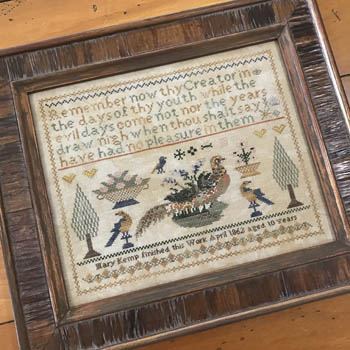 Remember now thy Creator in
the days of thy youth while the
evil days come not nor the years
draw nigh when thou shalt say I
have had no pleasure in them
Mary Kemp finished this Work April 1862 aged 10 Years